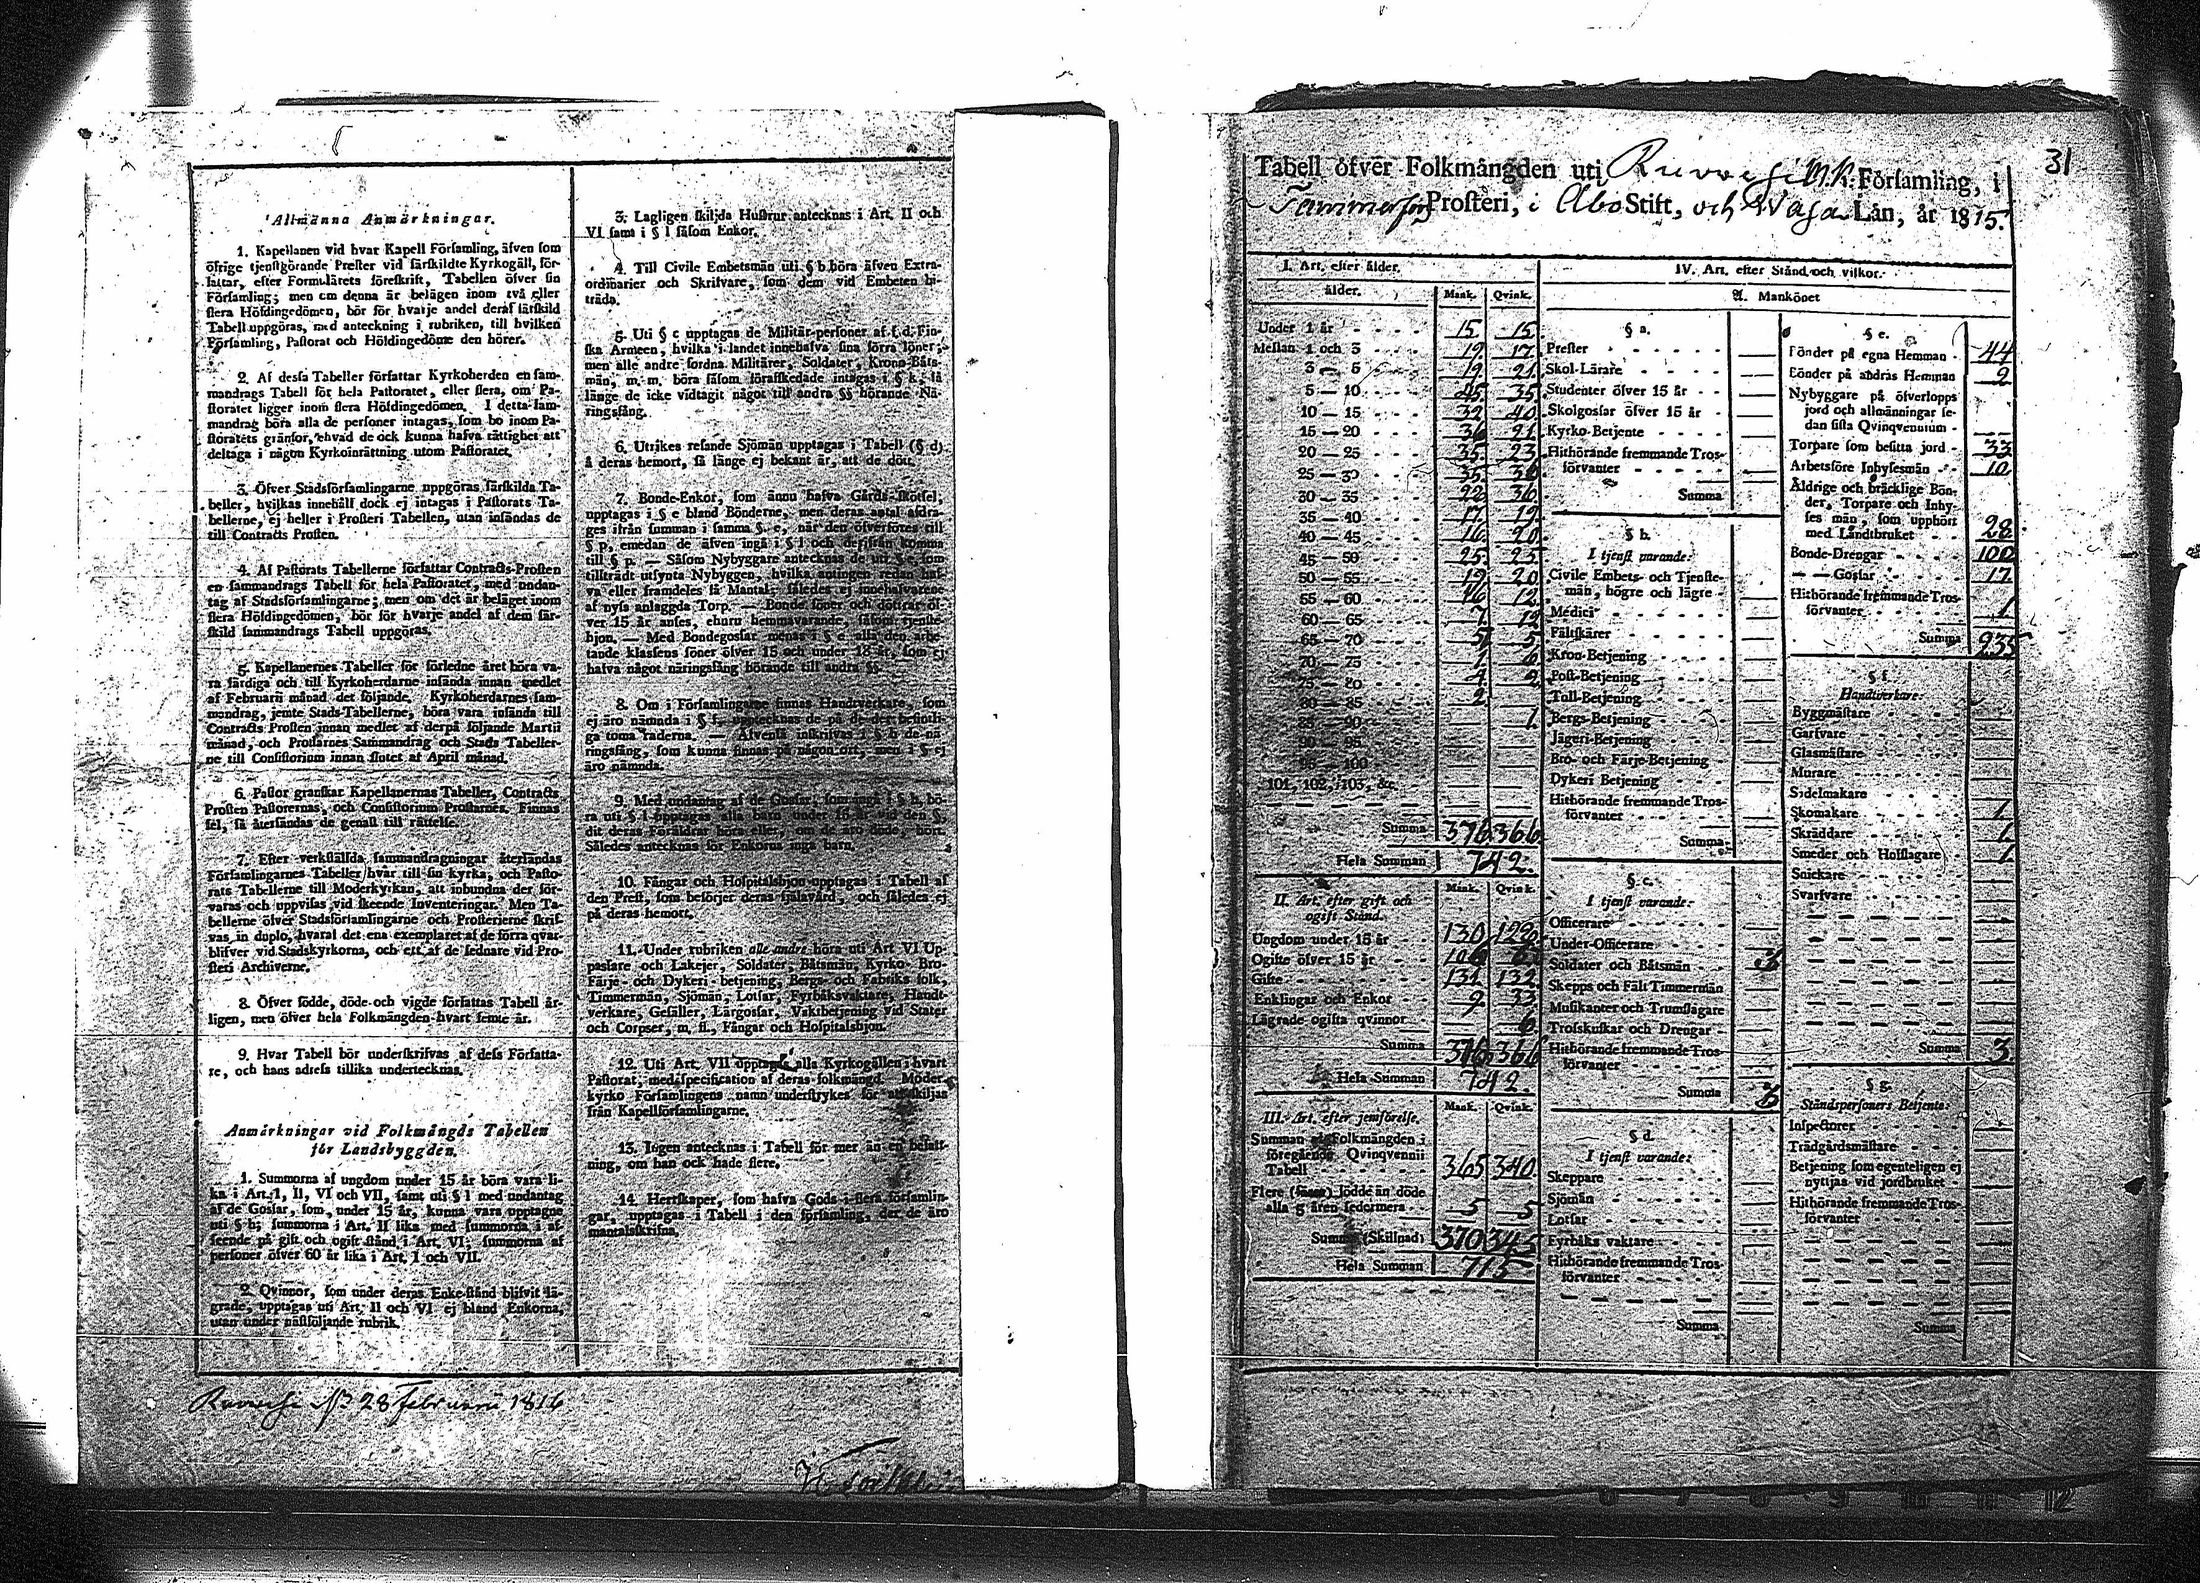 Allmänna Anmärkningar.
1. Kapellanen vid hvar Kapell Församling, äfven som
öfrige tjenstgörande Prester vid särskildte Kyrkogäll, för-
fattar, efter Formulärets föreskrift, Tabellen öfver sin
Församling; men om denna är belägen inom två eller
flera Höfdingedömen, bör för hvarje andel deraf särskild
Tabell uppgöras, med anteckning i rubriken, till hvilken
Församling, Pastorat och Höfdingedöme den hörer.
2. Af dessa Tabeller författar Kyrkoherden en sam-
mandrags Tabell för hela Pastoratet, eller flera, om Pa-
storatet ligger inom flera Höfdingedömen. I detta sam-
mandrag böra alla de personer intagas, som bo inom Pa-
storatets gränsor, ehvad de ock kunna hafva rättighet att
deltaga i någon Kyrkoinrättning utom Pastoratet.
3. Öfver Stadsförsamlingarne uppgöras särskilda Ta-
beller, hvilkas innehåll dock ej intagas i Pastorats Ta-
bellerne, ej heller i Prosteri Tabellen, utan insändas de
till Contracts Prosten.
4. Af Pastorats Tabellerne författar Contracts-Prosten
en sammandrags Tabell för hela Pastoratet, med undan-
tag af Stadsförsamlingarne; men om det är beläget inom
flera Höfdingedömen, bör för hvarje andel af dem sär-
skild sammandrags Tabell uppgöras.
5. Kapellanernes Tabeller för förledne året böra va-
ra färdiga och till Kyrkoherdarne insända innan medlet
af Februarii månad det följande. Kyrkoherdarnes sam-
mandrag, jemte Stads-Tabellerne, böra vara insända till
Contracts Prosten innan medlet af derpå följande Martii
månad, och Prostarnes Sammandrag och Stads Tabeller-
ne till Consistorium innan slutet af April månad.
6. Pastor granskar Kapellanernas Tabeller, Contracts
Prosten Pastorernas, och Consistorium Prostarnes. Finnas
fel, så återsändas de genast till rättelse.
7. Efter verkställda sammandragningar återsändas
Församlingarnes Tabeller hvar till sin kyrka, och Pasto-
rats Tabellerne till Moderkyrkan, att inbundna der för-
varas och uppvisas vid skeende Inventeringar. Men Ta-
bellerne öfver Stadsförsamlingarne och Prosterierne skrif-
vas in duplo, hvaraf det ena exemplaret af de förra qvar-
blifver vid Stadskyrkorna, och ett af de sednare vid Pro-
steri Archiverne.
8. Öfver födde, döde och vigde författas Tabell år-
ligen, men öfver hela Folkmängden hvart femte år.
9. Hvar Tabell bör underskrifvas af dess Författa-
re, och hans adress tillika undertecknas.
Anmärkningar vid Folkmängds Tabellen
för Landsbyggden.
1. Summorna af ungdom under 15 år böra vara li-
ka i Art. I, II, VI och VII, samt uti § l med undantag
af de Gossar, som, under 15 år, kunna vara upptagne
uti § h; summorna i Art. II lika med summorna i af-
seende på gift och ogift stånd i Art. VI; summorna af
personer öfver 60 år lika i Art. I och VII.
2. Qvinnor, som under deras Enke-stånd blifvit lä-
grade, upptagas uti Art. II och VI ej bland Enkorna,
utan under nästföljande rubrik.
3. Lagligen skiljda Hustrur antecknas i Art. II och
VI samt i § l såsom Enkor.
4. Till Civile Embetsmän uti § b böra äfven Extra-
ordinarier och Skrifvare, som dem vid Embeten bi-
träda.
5. Uti § c upptagas de Militär-personer af f. d. Fin-
ska Armeen, hvilka i landet innehafva sina förra löner;
men alle andre fordna Militärer, Soldater, Krono-Båts-
män, m. m. böra såsom förafskedade intagas i § k, så
länge de icke vidtagit något till andra §§ hörande Nä-
ringsfång.
6. Utrikes resande Sjömän upptagas i Tabell (§ d)
å deras hemort, så länge ej bekant är, att de dött.
7. Bonde-Enkor, som ännu hafva Gårds-skötsel,
upptagas i § e bland Bönderne, men deras antal afdra-
ges ifrån summan i samma §. e, när den öfverföres till
§ p, emedan de äfven ingå i § l och derifrån komma
till § p. — Såsom Nybyggare antecknas de uti § e, som
tillträdt utsynta Nybyggen, hvilka antingen redan haf-
va eller framdeles få Mantal; således ej innehafvarene
af nyss anlaggda Torp. — Bonde söner och döttrar öf-
ver 15 år anses, ehuru hemmavarande, såsom tjenste-
hjon. — Med Bondegossar menas i § e alla den arbe-
tande klassens söner öfver 15 och under 18 år, som ej
hafva något näringsfång hörande till andra §§.
8. Om i Församlingarne finnas Handtverkare, som
ej äro nämnda i § f, upptecknas de på de der befintli-
ga toma raderna. — Äfvenså inskrifvas i § h de nä-
ringsfång, som kunna finnas på någon ort, men i § ej
äro nämnda.
9. Med undantag af de Gossar, som ingå i § h, bö-
ra uti § l upptagas alla barn under 15 år vid den §,
dit deras Föräldrar höra eller, om de äro döde, hört.
Således antecknas för Enkorna inga barn.
10. Fångar och Hospitalshjon upptagas i Tabell af
den Prest, som besörjer deras själavård, och således ej
på deras hemort.
11. Under rubriken alle andre böra uti Art VI Up-
passare och Lakejer, Soldater, Båtsmän, Kyrko- Bro-
Färje- och Dykeri-betjening, Bergs- och Fabriks folk,
Timmermän, Sjömän, Lotsar, Fyrbåksvaktare, Handt-
verkare, Gesäller, Lärgossar, Vaktbetjening vid Stater
och Corpser, m. fl., Fångar och Hospitalshjon.
12. Uti Art. VII upptagas alla Kyrkogällen i hvart
Pastorat, med specification af deras folkmängd. Moder-
kyrko Församlingens namn understrykes för att skiljas
från Kapellförsamlingarne.
13. Ingen antecknas i Tabell för mer än en befatt-
ning, om han ock hade flere.
14. Herrskaper, som hafva Gods i flera församlin-
gar, upptagas i Tabell i den församling, der de äro
mantalsskrifna.
28 Februarii 1816
31
Tabell öfver Folkmängden uti Ruovesi M.K. Församling, i
Tammerfors Prosteri, i Åbo Stift, och Wasa Län, år 1815.
I. Art. efter ålder.
ålder. Mank. Qvink.
Under 1 år 15 15
Mellan 1 och 3 19 17
3 — 5 19 21
5 — 10 45 35
10 — 15 32 40
15 — 20 36 21
20 — 25 35 23
25 — 30 35
30 — 35 22 36
35 — 40 17 19
40 — 45 16 20
45 — 50 25 25
50 — 55 19 20
55 — 60 16 12
60 — 65 7
65 — 70 5
70 — 75 6
75 — 80 4 2
80 — 85 2
85 — 90 1
90 — 95
95 — 100
101, 102, 103, &c.
Summa 376 366
Hela Summan 742.
II. Art. efter gift och
ogift Stånd. Mank. Qvink.
Ungdom under 15 år 130 129
Ogifte öfver 15 år
Gifte 131 132
Enklingar och Enkor 9 33
Lägrade ogifta qvinnor 6
Summa 376 366
Hela Summan 742
III. Art. efter jemförelse. Mank. Qvink.
Summan af Folkmängden i
föregående Qvinqvennii
Tabell 365 340
Flere födde än döde
alla 5 åren sedermera 5 5
Summa (Skillnad) 370 345
Hela Summan 715
IV. Art. efter Stånd och vilkor.
A. Mankönet
§ a.
Prester
Skol-Lärare
Studenter öfver 15 år
Skolgossar öfver 15 år
Kyrko-Betjente
Hithörande fremmande Tros-
förvanter
Summa
§ b.
I tjenst varande:
Civile Embets- och Tjenste-
män, högre och lägre
Medici
Fältskärer
Kron-Betjening
Post-Betjening
Tull-Betjening
Bergs-Betjening
Jägeri-Betjening
Bro- och Färje-Betjening
Dykeri Betjening
Hithörande fremmande Tros-
förvanter
Summa
§ c.
I tjenst varande:
Officerare
Under-Officerare
Soldater och Båtsmän 3
Skepps och Fält Timmermän
Musikanter och Trumslagare
Trosskuskar och Drengar
Hithörande fremmande Tros-
förvanter
Summa 3
§ d.
I tjenst varande:
Skeppare
Sjömän
Lotsar
Fyrbåks vaktare
Hithörande fremmande Tros-
förvanter
Summa
§ e.
Bönder på egna Hemman 44
Bönder på andras Hemman 2
Nybyggare på öfverlopps
jord och allmänningar se-
dan sista Qvinqvennium
Torpare som besitta jord 33
Arbetsföre Inhysesmän 10
Äldrige och bräcklige Bön-
der, Torpare och Inhy-
ses män, som upphört
med Landtbruket 28
Bonde-Drengar 100
— — Gossar 17
Hithörande fremmande Tros-
förvanter 1
Summa 235
§ f.
Handtverkare:
Byggmästare
Garfvare
Glasmästare
Murare
Sadelmakare
Skomakare 1
Skräddare 1
Smeder och Hofslagare 1
Snickare
Svarfvare
Summa 3
§ g.
Ståndspersoners Betjente:
Inspectorer
Trädgårdsmästare
Betjening som egenteligen ej
nyttjas vid jordbruket
Hithörande fremmande Tros-
förvanter
Summa